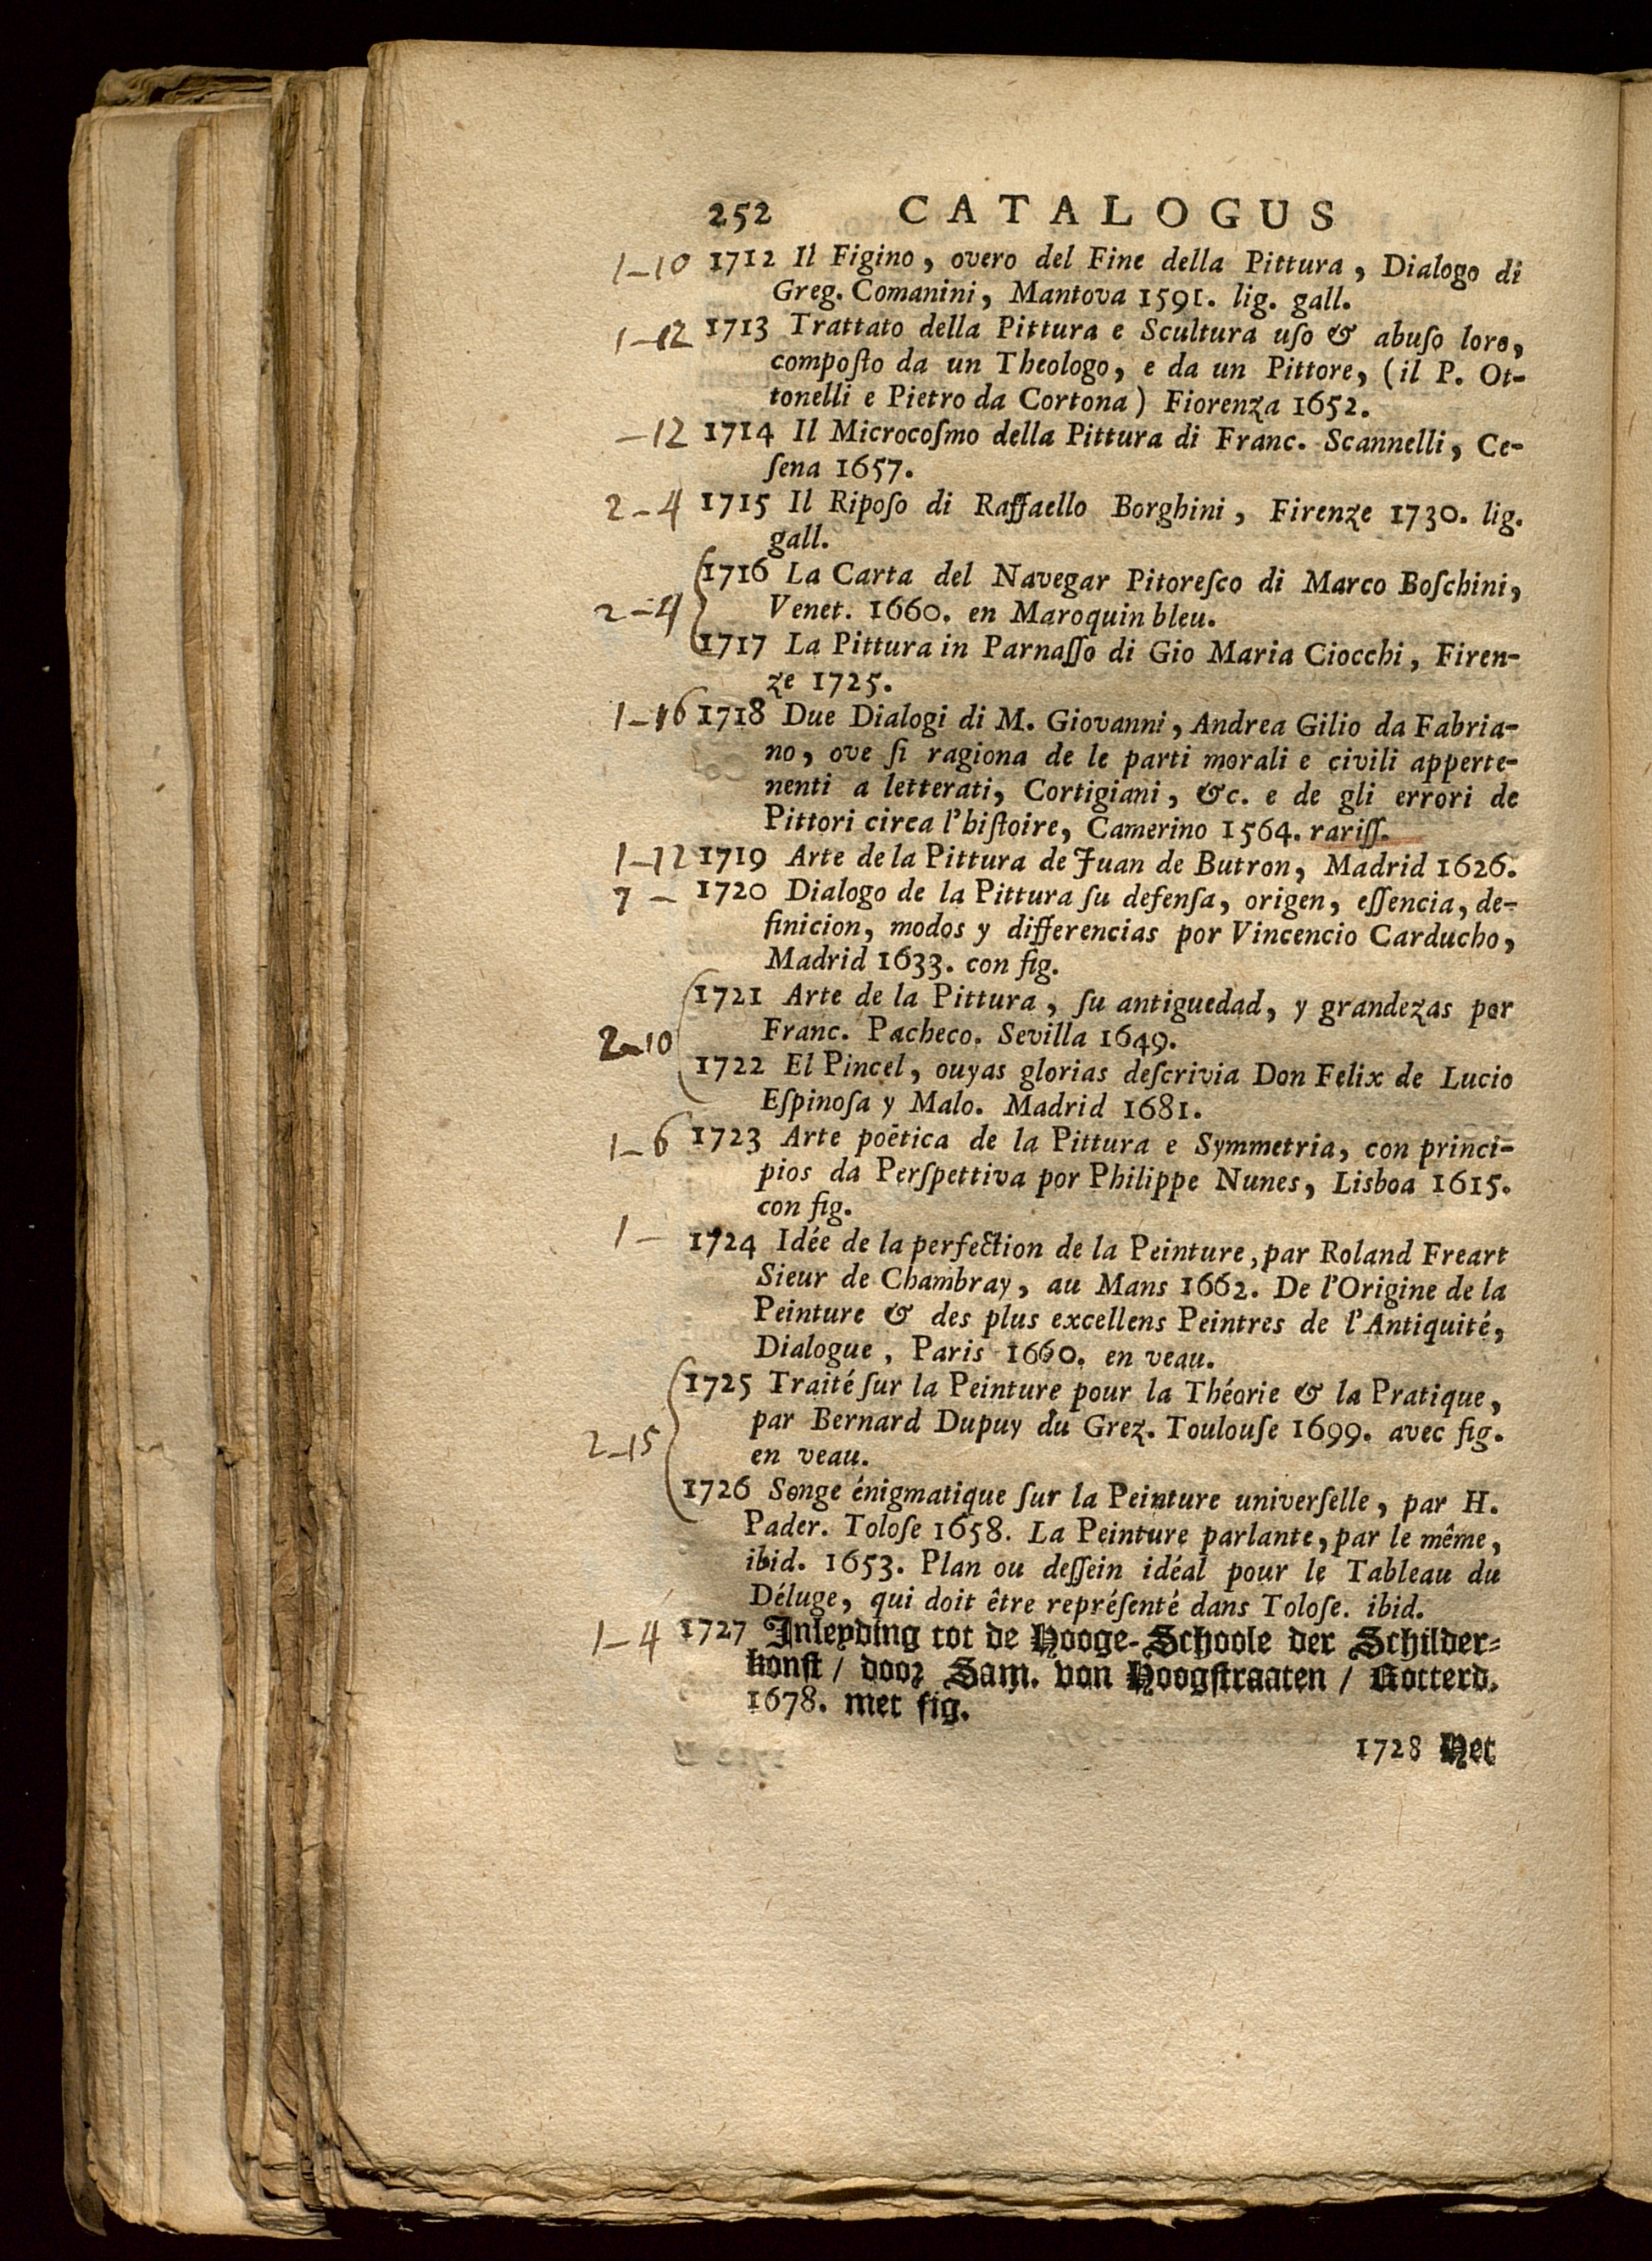 252 CATALOGUS
1–10 1712 Il Figino, overo del Fine della Pittura, Dialogo di
Greg. Comanini, Mantova 1591. lig. gall.
1–12 1713 Trattato della Pittura e Scultura uſo & abuſo loro,
compoſto da un Theologo, e da un Pittore, (il P. Ot-
tonelli e Pietro da Cortona) Fiorenza 1652.
–12 1714 Il Microcoſmo della Pittura di Franc. Scannelli, Ce-
ſena 1657.
2–4 1715 Il Ripoſo di Raffaello Borghini, Firenze 1730. lig.
gall.
1716 La Carta del Navegar Pitoreſco di Marco Boſchini,
2–4 Venet. 1660. en Maroquin bleu.
1717 La Pittura in Parnaſſo di Gio Maria Ciocchi, Firen-
ze 1725.
1–16 1718 Due Dialogi di M. Giovanni, Andrea Gilio da Fabria-
no, ove ſi ragiona de le parti morali e civili apperte-
nenti a letterati, Cortigiani, &c. e de gli errori de
Pittori circa l'hiſtoire, Camerino 1564. rariſſ.
1–12 1719 Arte de la Pittura de Juan de Butron, Madrid 1626.
7 – 1720 Dialogo de la Pittura ſu defenſa, origen, eſſencia, de-
finicion, modos y differencias por Vincencio Carducho,
Madrid 1633. con fig.
1721 Arte de la Pittura, ſu antiguedad, y grandezas por
2–10 Franc. Pacheco. Sevilla 1649.
1722 El Pincel, ouyas glorias deſcrivia Don Felix de Lucio
Eſpinoſa y Malo. Madrid 1681.
1–6 1723 Arte poëtica de la Pittura e Symmetria, con princi-
pios da Perſpettiva por Philippe Nunes, Lisboa 1615.
con fig.
1 – 1724 Idée de la perfection de la Peinture, par Roland Freart
Sieur de Chambray, au Mans 1662. De l'Origine de la
Peinture & des plus excellens Peintres de l'Antiquité,
Dialogue, Paris 1660. en veau.
1725 Traité ſur la Peinture pour la Théorie & la Pratique,
par Bernard Dupuy du Grez. Toulouſe 1699. avec fig.
2–15 en veau.
1726 Songe énigmatique ſur la Peinture univerſelle, par H.
Pader. Toloſe 1658. La Peinture parlante, par le même,
ibid. 1653. Plan ou deſſein idéal pour le Tableau du
Déluge, qui doit être repréſenté dans Toloſe. ibid.
1–4 1727 Inleyding tot de Hooge-Schoole der Schilder-
konst / door Sam. von Hoogſtraaten / Rotterd.
1678. met fig.
1728 Het